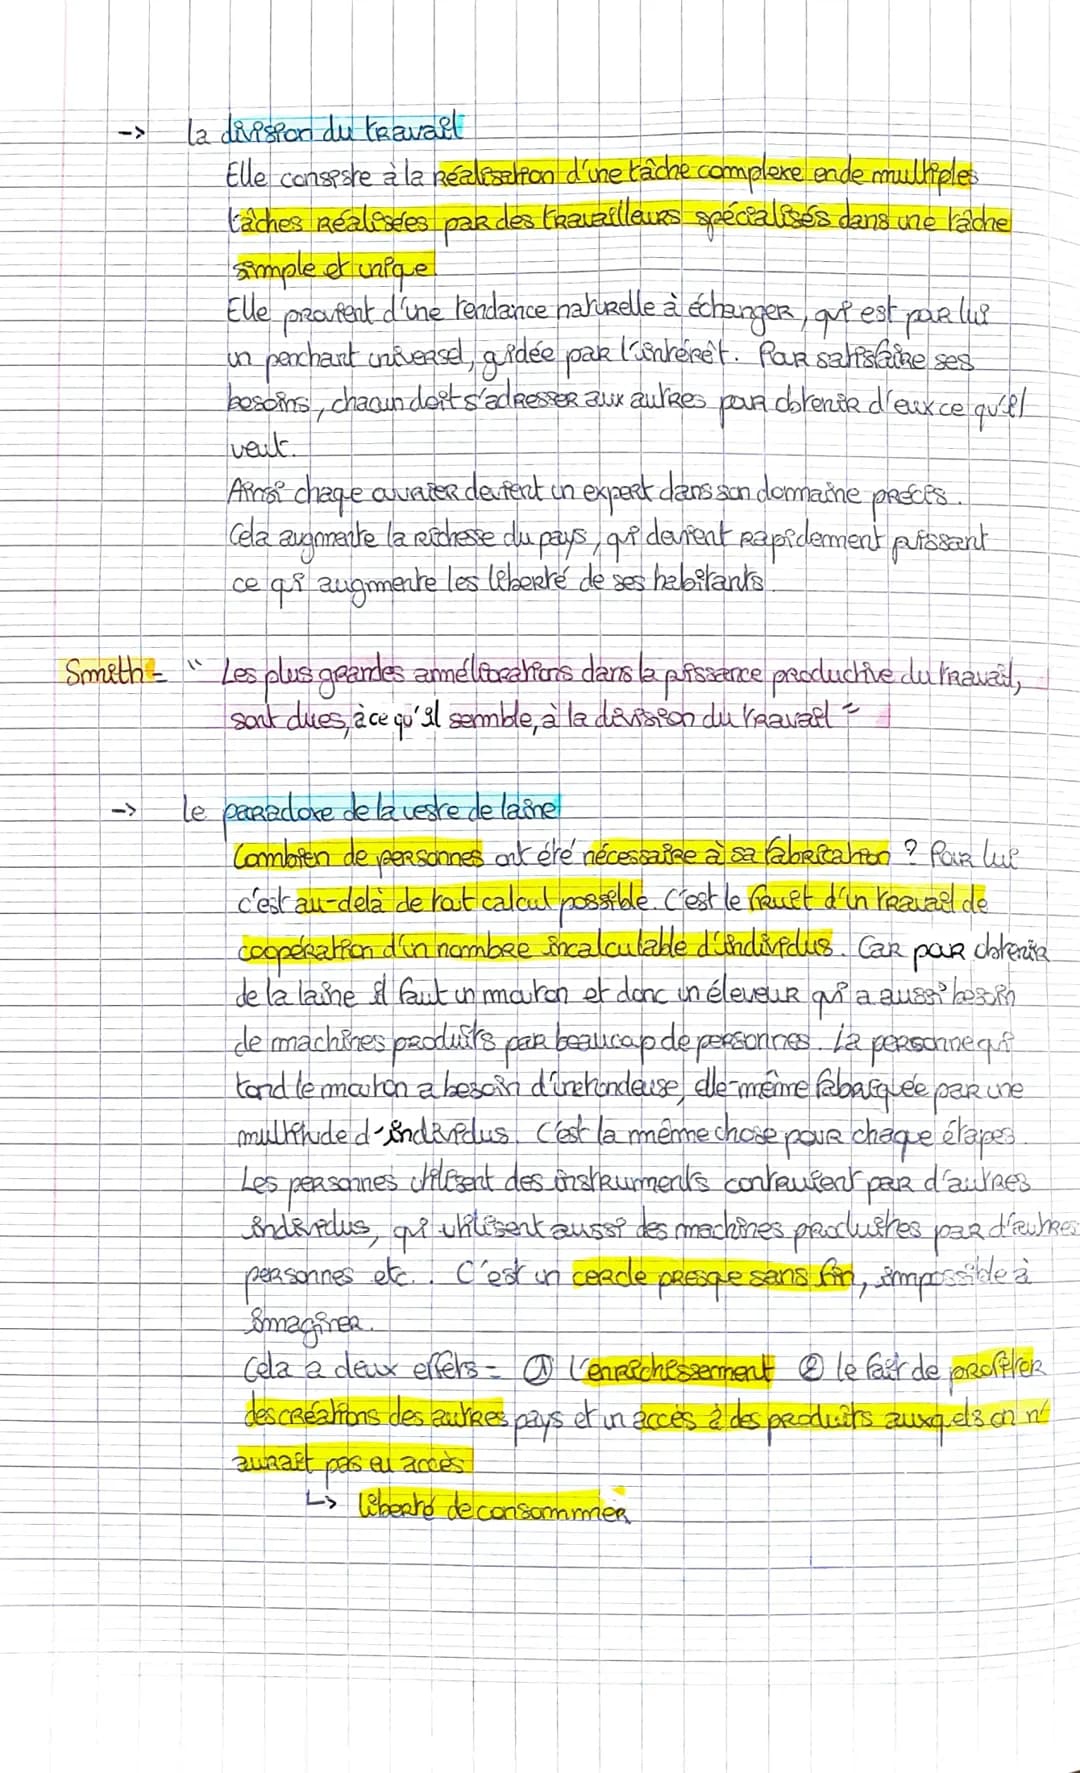 -> la division du travail
Elle consiste à la réalisation d'une tâche complexe en de multiples
tâches réalisées par des travailleurs spécialisés dans une tâche
simple et unique
Elle provient d'une tendance naturelle à échanger, qui est pour lui
un penchant universel, guidée par l'intérêt. Pour satisfaire ses
besoins, chacun doit s'adresser aux autres pour obtenir d'eux ce qu'il
veut.
Ainsi chaque ouvrier devient un expert dans son dommaine précis.
Cela augmente la richesse du pays, qui devient rapidement puissant
ce qui augmente les liberté de ses habitants.
Smith = " Les plus grandes amméliorations dans la puissance productive du travail,
sont dues, à ce qu'il semble, à la division du travail "
-> le paradoxe de la veste de laine
Combien de personnes ont été nécessaire à sa fabrication ? Pour lui
c'est au-delà de tout calcul possible. C'est le fruit d'un travail de
coopération d'un nombre incalculable d'individus. Car pour obtenir
de la laine il faut un mouton et donc un éleveur qui a aussi besoin
de machines produits par beaucoup de personnes. La personne qui
tond le mouton a besoin d'une tondeuse, elle-même fabriquée par une
multitude d'individus. C'est la même chose pour chaque étapes.
Les personnes utilisent des instruments contruient par d'autres
individus, qui utilisent aussi des machines productes par d'autres
personnes etc.. C'est un cercle presque sans fin, impossible à
imaginer.
Cela a deux effets = ① l'enrichissement ② le fait de profiter
des créations des autres pays et un accès à des produits auxquels on n'
aurait pas eu accès
↳ liberté de consommer